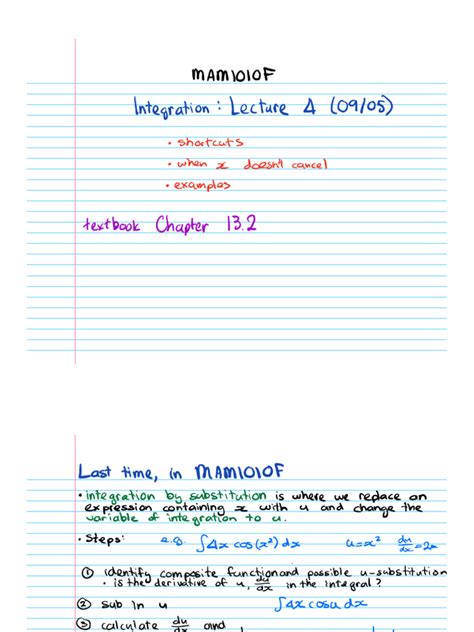 MAM1010F
Integration: Lecture 4 (09/05)
• shortcuts
• when x doesn't cancel
• examples
textbook Chapter 13.2
Last time, in MAM1010F
• integration by substitution is where we replace an
expression containing x with u and change the
variable of integration to u.
• Steps: e.g. ∫4x cos(x²)dx u=x² du/dx=2x
① identify composite function and possible u-substitution
• is the derivative of u, du/dx in the integral?
② sub in u ∫4x cosu dx
③ calculate du/dx and